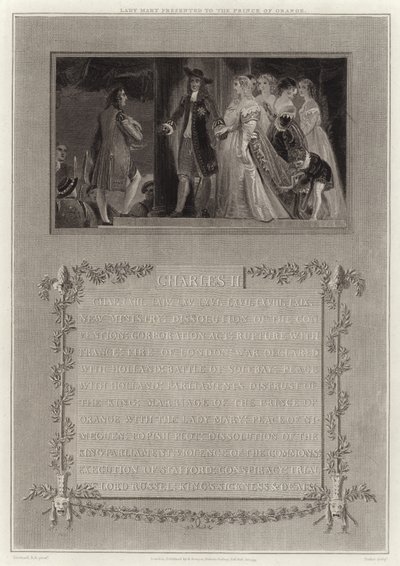 LADY MARY PRESENTED TO THE PRINCE OF ORANGE.
CHARLES II
CHAP. LXIII. LXIV. LXV. LXVI. LXVII. LXVIII. LXIX.
NEW MINISTRY: DISSOLUTION OF THE CON
VENTION: CORPORATION ACT: RUPTURE WITH
FRANCE: FIRE OF LONDON: WAR DECLARED
WITH HOLLAND: BATTLE OF SOLEBAY: PEACE
WITH HOLLAND: PARLIAMENTS DISTRUST OF
THE KING: MARRIAGE OF THE PRINCE OF
ORANGE WITH THE LADY MARY: PEACE OF NI
MEGUEN: POPISH PLOT: DISSOLUTION OF THE
KING: PARLIAMENT: VIOLENCE OF THE COMMONS:
EXECUTION OF STAFFORD: CONSPIRACY: TRIAL
OF LORD RUSSEL: KING'S SICKNESS & DEATH